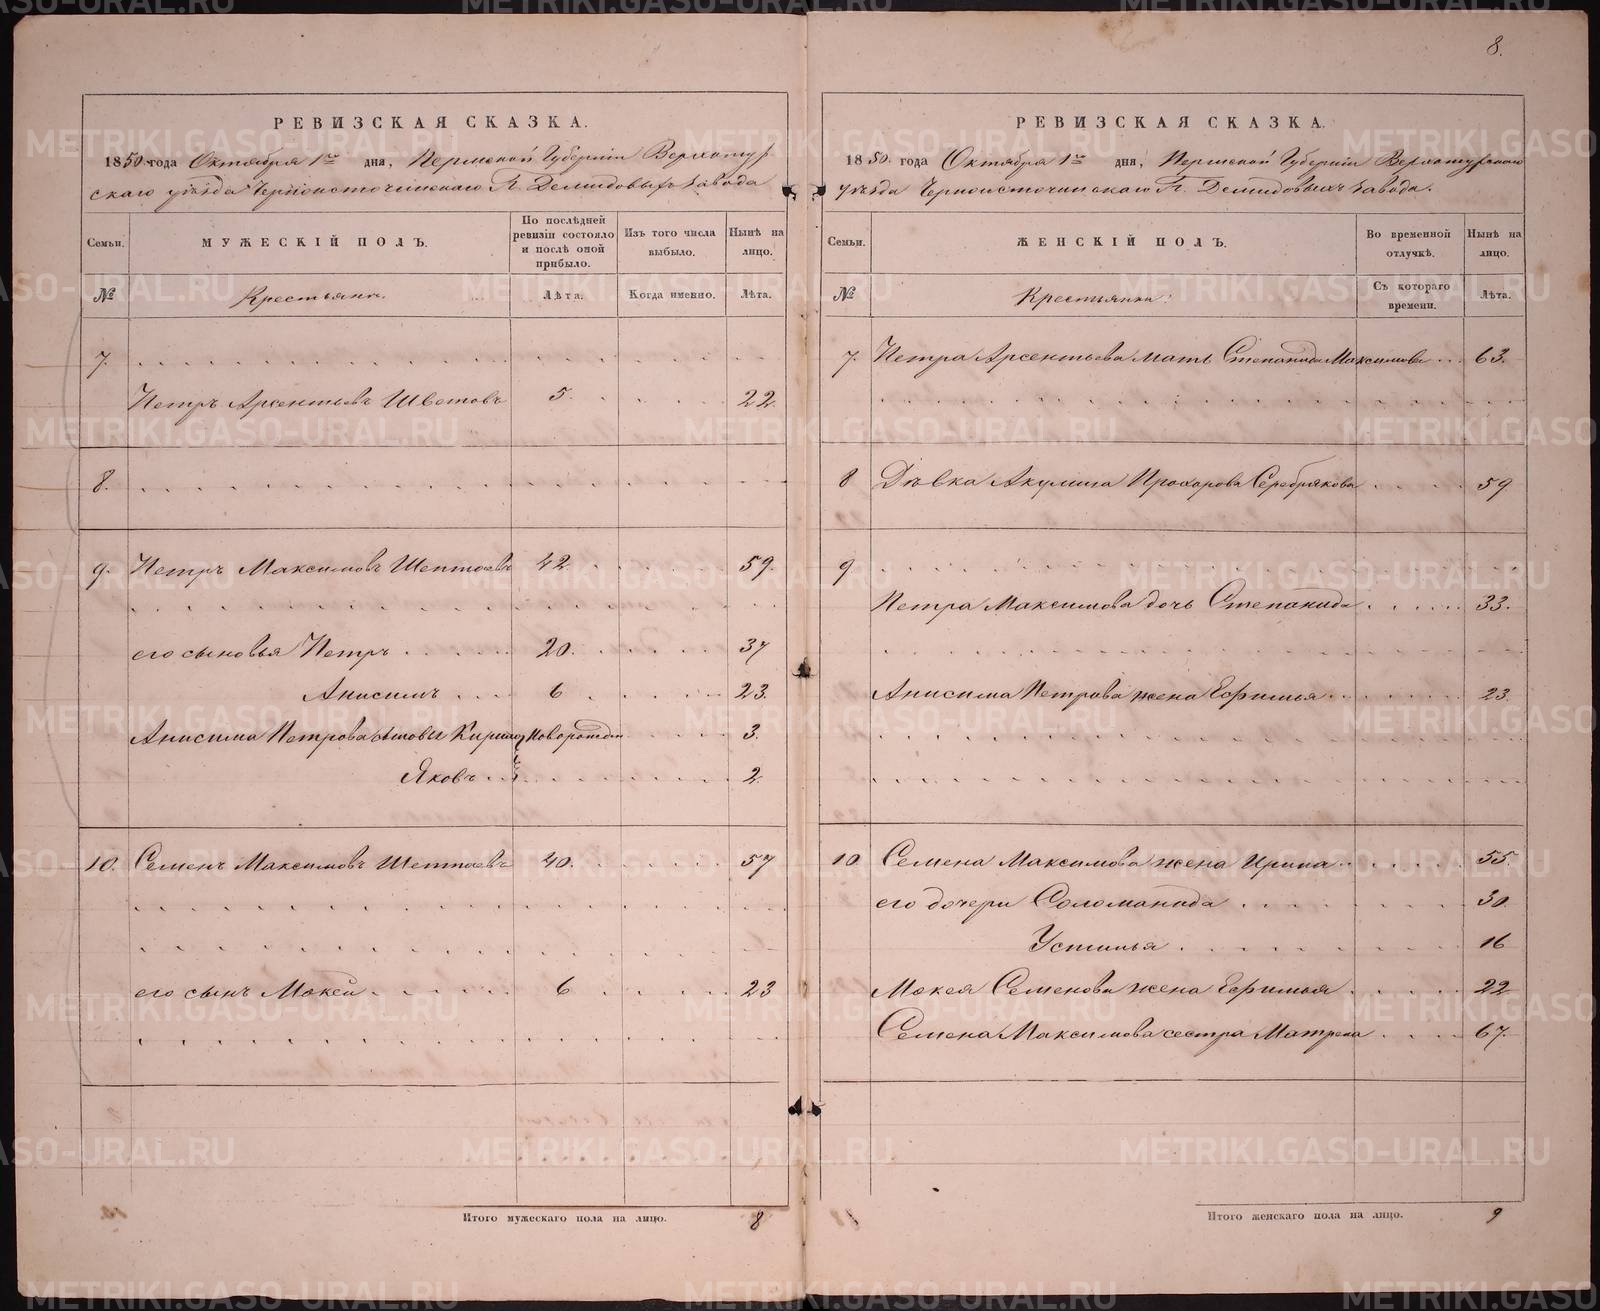 РЕВИЗСКАЯ СКАЗКА.
1850 года Октября 1го дня, Пермской Губерніи Верхотур
скаго уѣзда Черноисточинскаго Г. Демидовыхъ Завода
Семьи. МУЖЕСКІЙ ПОЛЪ. По послѣдней ревизіи состояло и послѣ оной прибыло. Изъ того числа выбыло. Нынѣ на лицо.
№ Крестьянъ. Лѣта. Когда именно. Лѣта.
7.
Петръ Арсентьевъ Шветовъ 5. 22
8.
9. Петръ Максимовъ 42 59.
его сыновья Петръ 20. 37
Анисимъ 6 23.
Анисима Петрова сыновья новорожден 3.
Яковъ 2.
10. Семенъ Максимовъ 40. 57
его сынъ Мокей 6 23
Итого мужескаго пола на лицо. 8
8.
РЕВИЗСКАЯ СКАЗКА.
1850 года Октября 1го дня, Пермской Губерніи Верхотурскаго
уѣзда Черноисточинскаго Г. Демидовыхъ Завода.
Семьи. ЖЕНСКІЙ ПОЛЪ. Во временной отлучкѣ. Нынѣ на лицо.
№ Крестьянки. Съ котораго времени. Лѣта.
7. Петра Арсентьева мать Степанида Максимова 63.
8 Дѣвка Акулина Прохорова Серебрякова 59.
9
Петра Максимова дочь Степанида 33.
Анисима Петрова жена Ефимья 23.
10 Семена Максимова жена Ирина 55.
его дочери Соломанида 30.
Устинья 16
Мокея Семенова жена Ефимья 22
Семена Максимова сестра Матрена 67.
Итого женскаго пола на лицо. 9
METRIKI.GASO-URAL.RU